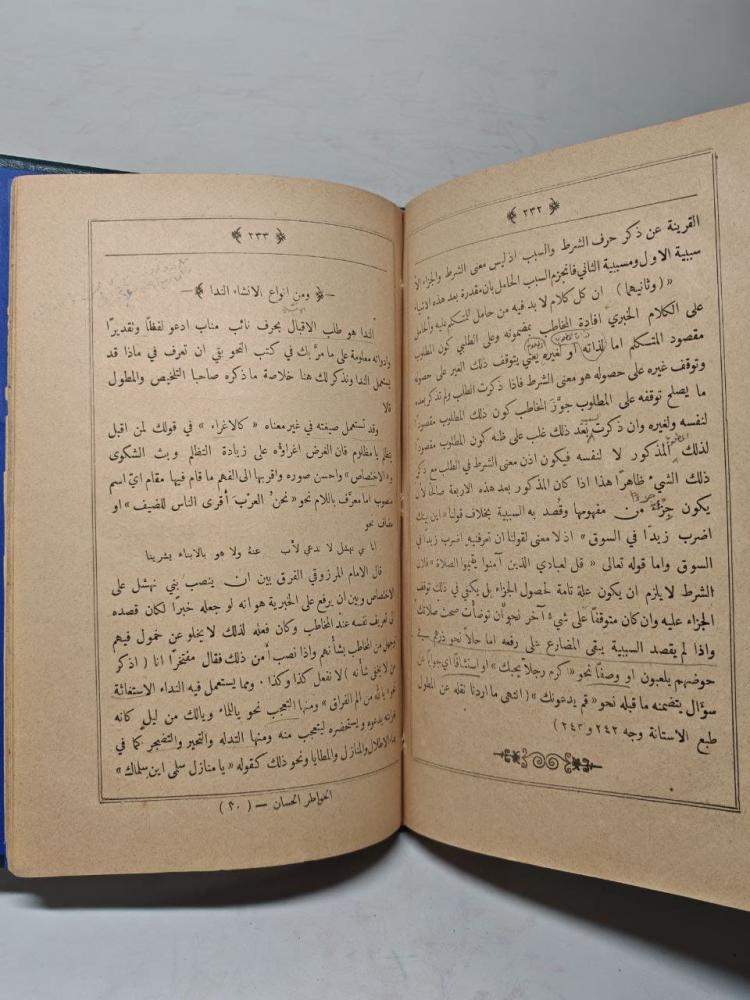 ﴿ ٢٣٢ ﴾
القرينة عن ذكر حرف الشرط والسبب اذ ليس معنى الشرط والجزاء الا
سببية الاول ومسببية الثاني فانجزم السبب الحامل بان مقدرة بعد هذه الاشياء
« (وثانيهما) ان كل كلام لا بد فيه من حامل للمتكلم عليه والحامل
على الكلام الخبري افادة المخاطب بمضمونه وعلى الطلبي كون المطلوب
مقصود المتكلم اما لذاته او لغيره يعني يتوقف ذلك الغير على حصوله
وتوقف غيره على حصوله هو معنى الشرط فاذا ذكرت الطلب ولم تذكر بعده
ما يصلح توقفه على المطلوب جوَّز المخاطب كون ذلك المطلوب مقصودًا
لنفسه ولغيره وان ذكرت بعد ذلك غلب على ظنه كون المطلوب مقصودًا
لذلك المذكور لا لنفسه فيكون اذن معنى الشرط في الطلب مع ذكر
ذلك الشيء ظاهرًا هذا اذا كان المذكور بعد هذه الاربعة صالحًا لأن
يكون جزاءً من مفهومها وقُصد به السببية بخلاف قولنا « اين بيتك
اضرب زيدًا في السوق » اذ لا معنى لقولنا ان تعرفنيه اضرب زيدًا في
السوق واما قوله تعالى « قل لعبادي الذين آمنوا يقيموا الصلاة » فلان
الشرط لا يلزم ان يكون علة تامة لحصول الجزاء بل يكفي في ذلك توقف
الجزاء عليه وان كان متوقفًا على شيء آخر نحو ان توضأت صحت صلاتك
واذا لم يقصد السببية يبقى المضارع على رفعه اما حالاً نحو ذرهم في
خوضهم يلعبون او وصفًا نحو « اكرم رجلاً يحبك » او استئنافًا اي جوابًا عن
سؤال يتضمنه ما قبله نحو « قم يدعونك » (انتهى ما اردنا نقله عن المطول
طبع الاستانة وجه ٢٤٢ و ٢٤٣)
﴿ ٢٣٣ ﴾
—﴿ ومن انواع الانشاء الندا ﴾—
الندا هو طلب الاقبال بحرف نائب مناب ادعو لفظًا وتقديرًا
وادواته معلومة على ما مرَّ بك في كتب النحو بقي ان تعرف في ماذا قد
يستعمل الندا ونذكر لك هنا خلاصة ما ذكره صاحبا التلخيص والمطول
قالا
وقد تستعمل صيغته في غير معناه « كالاغراء » في قولك لمن اقبل
يتظلم يا مظلوم فان الغرض اغراؤه على زيادة التظلم وبث الشكوى
و « الاختصاص » واحسن صوره واقربها الى الفهم ما قام فيها مقام ايّ اسم
منصوب اما معرَّف باللام نحو « نحن العربَ أقرى الناس للضيف » او
مضاف نحو
انا بني نهشل لا ندعي لأب عنهُ ولا هو بالابناء يشرينا
قال الامام المرزوقي الفرق بين ان ينصب بني نهشل على
الاختصاص وبين ان يرفع على الخبرية هو انه لو جعله خبرًا لكان قصده
الى تعريف نفسه عند المخاطب وكان فعله لذلك لا يخلو عن خمول فيهم
وجهل من المخاطب بشأنهم واذا نصب أمن ذلك فقال مفتخرًا انا (اذكر
من لا يخفى شأنه) لا نفعل كذا وكذا. ومما يستعمل فيه النداء الاستغاثة
نحو « يا لله من الم الفراق » ومنها التعجب نحو يا للماء ويا لك من ليل كأنه
لغرابته يدعوه ويستحضره ليتعجب منه ومنها التدله والتحير والتضجر كما في
نداء الاطلال والمنازل والمطايا ونحو ذلك كقوله « يا منازل سلمى اين سلماك »
الخواطر الحسان — (٣٠)